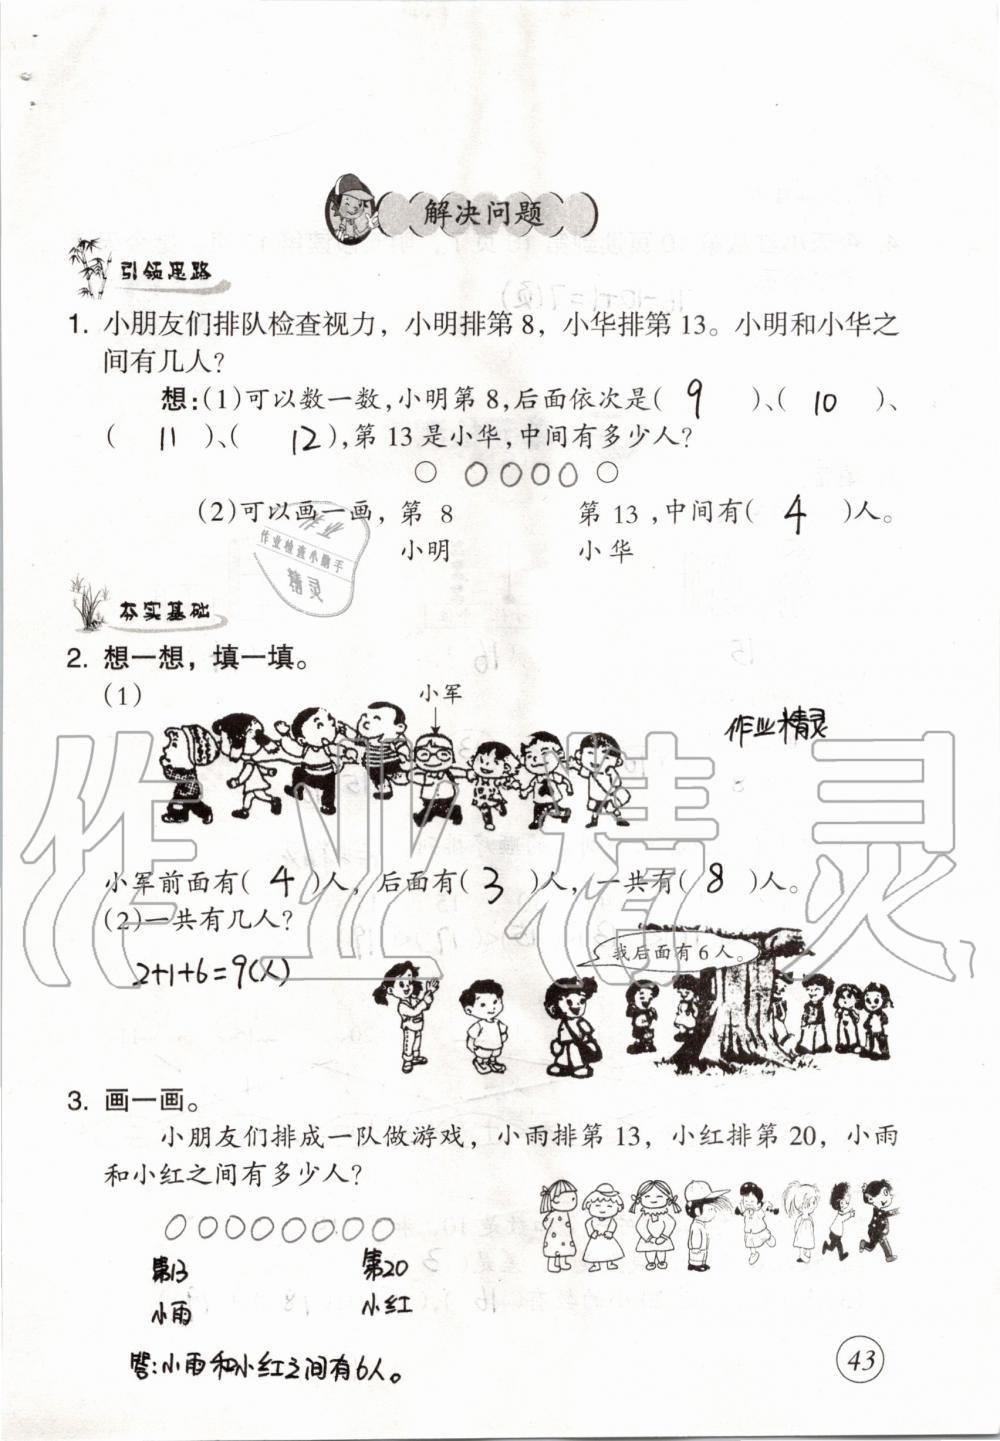 解决问题
引领思路
1. 小朋友们排队检查视力，小明排第 8，小华排第 13。小明和小华之
间有几人？
想：(1)可以数一数，小明第 8，后面依次是( 9 )、( 10 )、
( 11 )、( 12 )，第 13 是小华，中间有多少人？
○ 0000 ○
(2)可以画一画，第 8 第 13，中间有( 4 )人。
小明 小华
作业检查小助手
精灵
夯实基础
2. 想一想，填一填。
(1)
小军
作业精灵
小军前面有( 4 )人，后面有( 3 )人，一共有( 8 )人。
(2)一共有几人？
我后面有 6 人。
2+1+6=9(人)
3. 画一画。
小朋友们排成一队做游戏，小雨排第 13，小红排第 20，小雨
和小红之间有多少人？
00000000
第13 第20
小雨 小红
答：小雨和小红之间有6人。
43
作业精灵